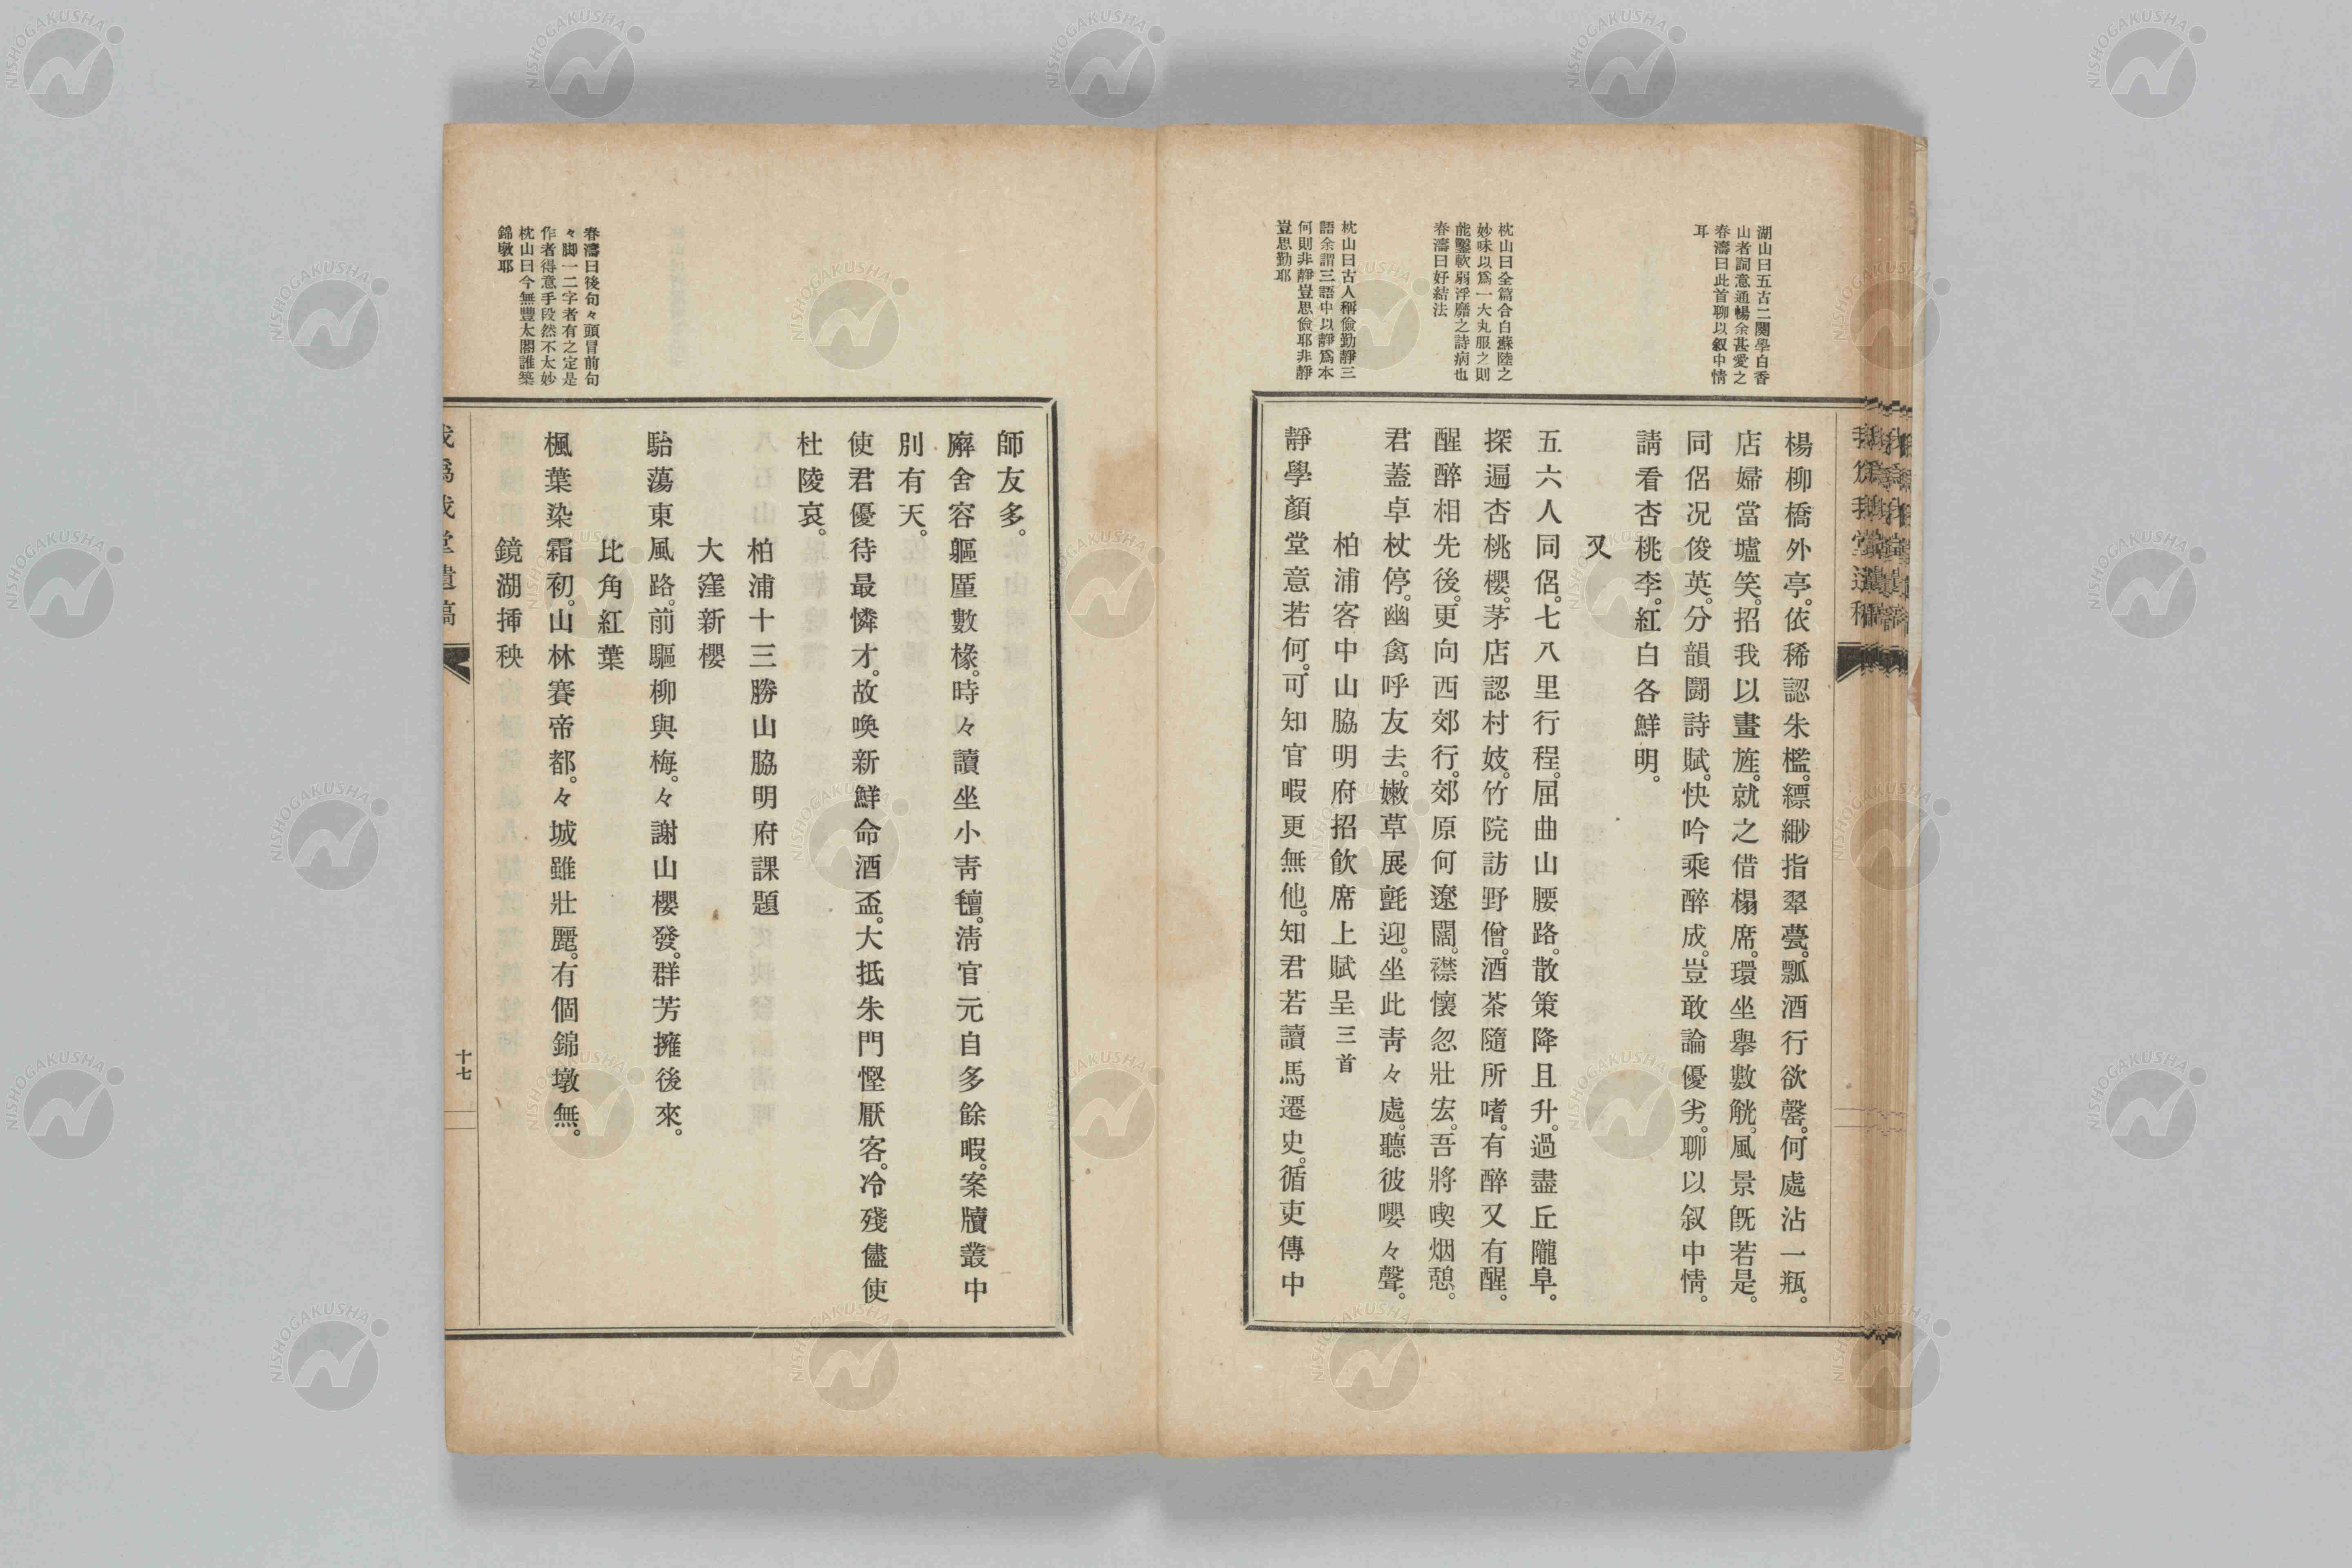 湖山曰五古二闋學白香
山者詞意通暢余甚愛之
春濤曰此首聊以叙中情
耳
枕山曰全篇合白蘇陸之
妙味以爲一大丸服之則
能鑿軟弱浮靡之詩病也
春濤曰好結法
枕山曰古人稱儉勤靜三
語余謂三語中以靜爲本
何則非靜豈思儉耶非靜
豈思勤耶
楊柳橋外亭。依稀認朱檻。縹緲指翠甍。瓢酒行欲罄。何處沽一瓶。
店婦當壚笑。招我以畫旌。就之借榻席。環坐擧數觥。風景旣若是。
同侶况俊英。分韻鬪詩賦。快吟乘醉成。豈敢論優劣。聊以叙中情。
請看杏桃李。紅白各鮮明。
又
五六人同侶。七八里行程。屈曲山腰路。散策降且升。過盡丘隴阜。
探遍杏桃櫻。茅店認村妓。竹院訪野僧。酒茶隨所嗜。有醉又有醒。
醒醉相先後。更向西郊行。郊原何遼闊。襟懷忽壯宏。吾將喫烟憩。
君蓋卓杖停。幽禽呼友去。嫩草展氈迎。坐此靑々處。聽彼嚶々聲。
柏浦客中山脇明府招飮席上賦呈三首
靜學顏堂意若何。可知官暇更無他。知君若讀馬遷史。循吏傳中
春濤曰後句々頭冒前句
々脚一二字者有之定是
作者得意手段然不太妙
枕山曰今無豐太閤誰築
錦墩耶
師友多。
廨舍容軀厪數椽。時々讀坐小靑氊。淸官元自多餘暇。案牘叢中
別有天。
使君優待最憐才。故喚新鮮命酒盃。大抵朱門慳厭客。冷殘儘使
杜陵哀。
柏浦十三勝山脇明府課題
大窪新櫻
駘蕩東風路。前驅柳與梅。々謝山櫻發。群芳擁後來。
比角紅葉
楓葉染霜初。山林賽帝都。々城雖壯麗。有個錦墩無。
鏡湖挿秧
我爲我堂遺稿
十七
NISHOGAKUSHA